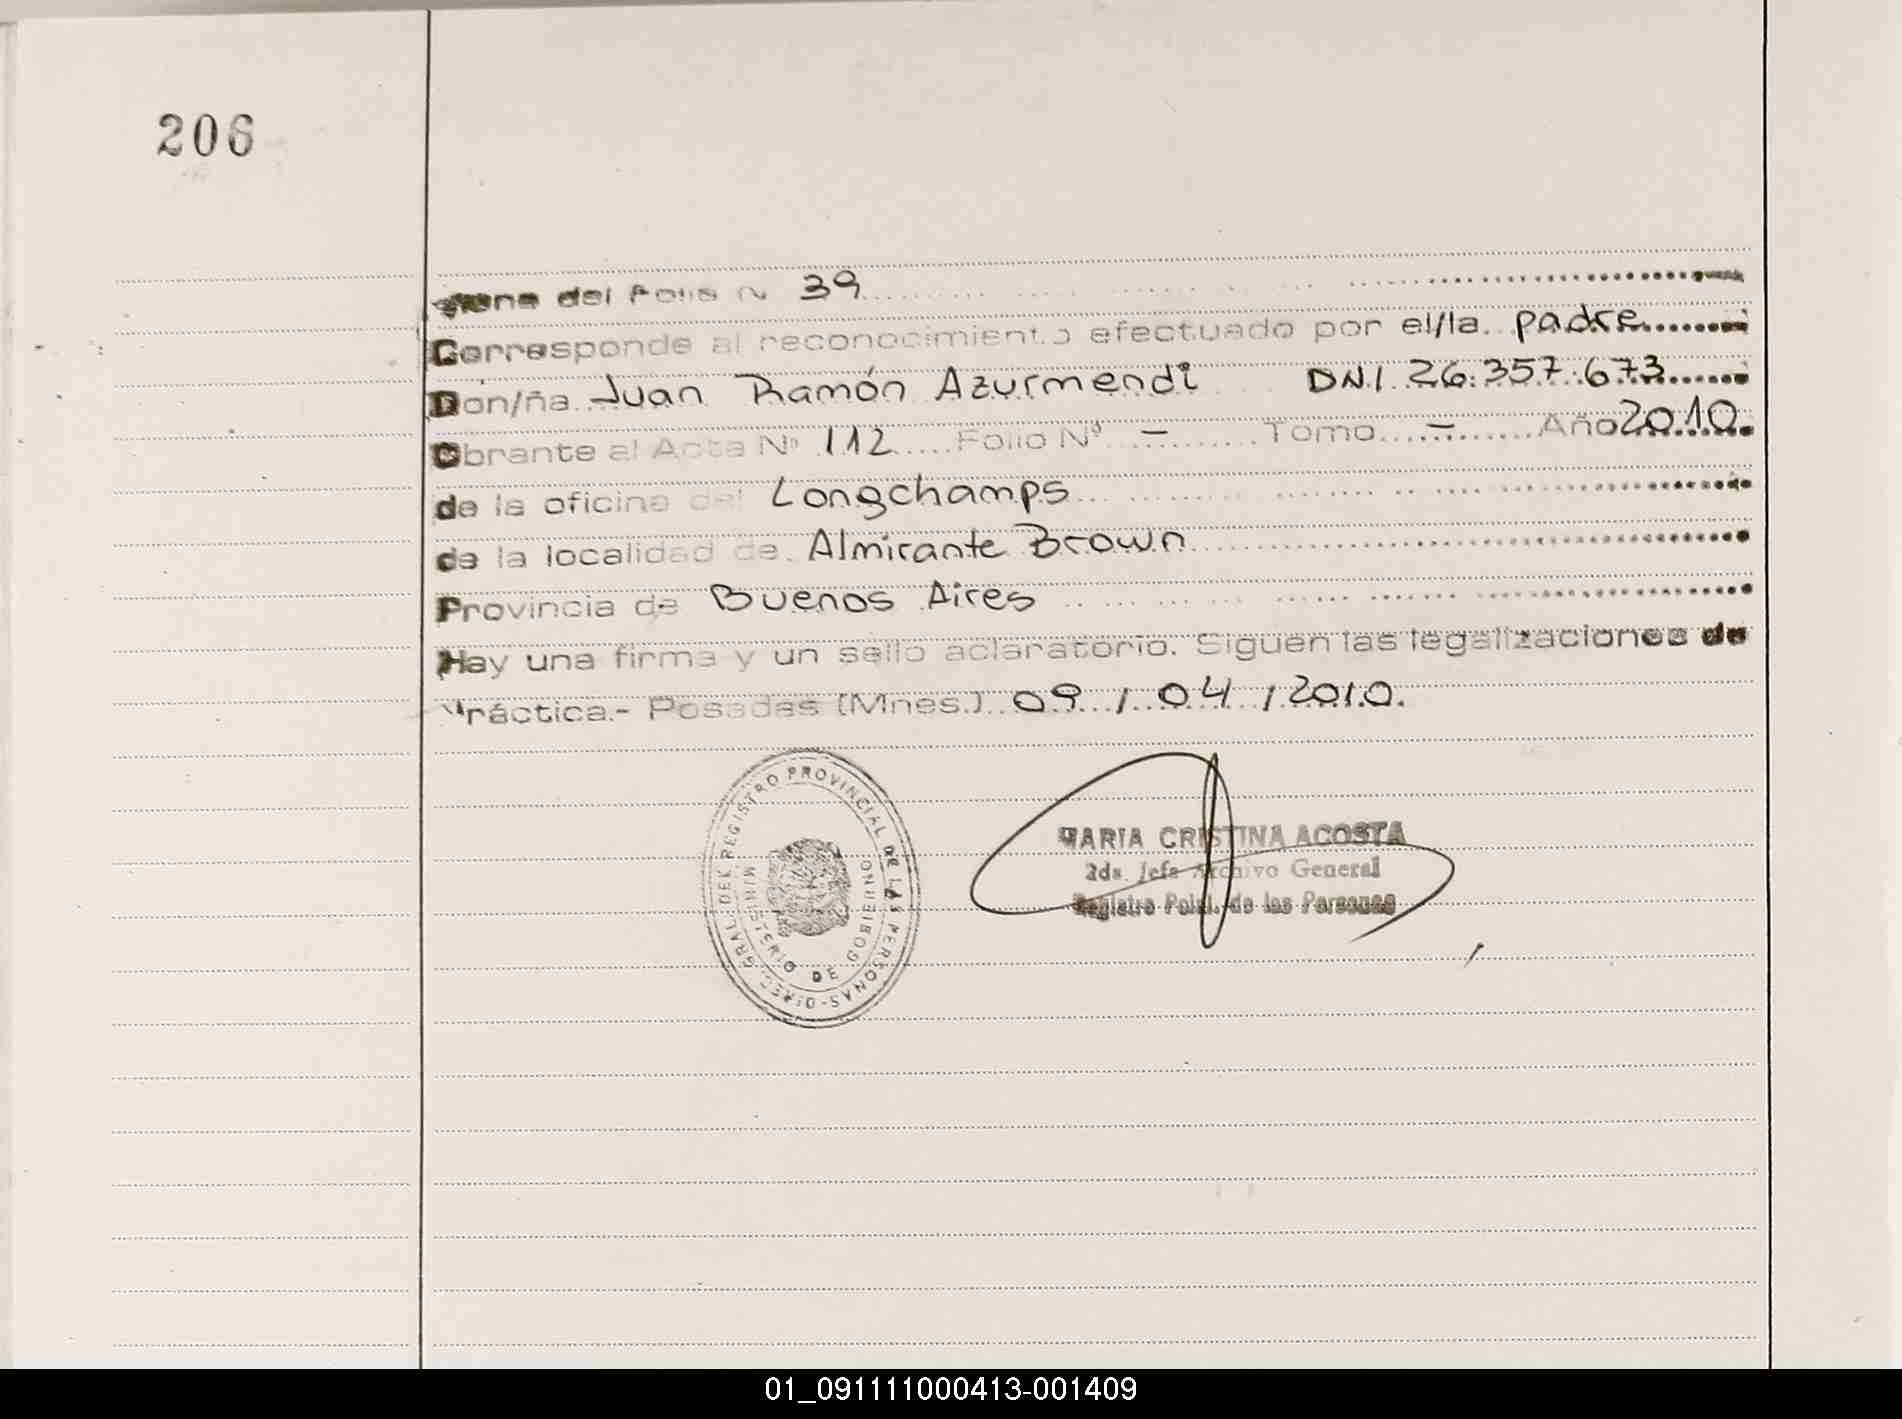 206
Viene del Folio Nº 39
Corresponde al reconocimiento efectuado por el/la padre
Don/ña Juan Ramón Azurmendi DN.I. 26.357.673
Obrante al Acta Nº 112 Folio Nº - Tomo - Año 2010
de la oficina del Longchamps
de la localidad de Almirante Brown
Provincia de Buenos Aires
Hay una firma y un sello aclaratorio. Siguen las legalizaciones de
Práctica.- Posadas (Mnes.) 09 / 04 / 2010.
DIREC. GRAL. DEL REGISTRO PROVINCIAL DE LAS PERSONAS-
MINISTERIO DE GOBIERNO
MARIA CRISTINA ACOSTA
2da. Jefa Archivo General
Registro de las Personas
01_091111000413-001409